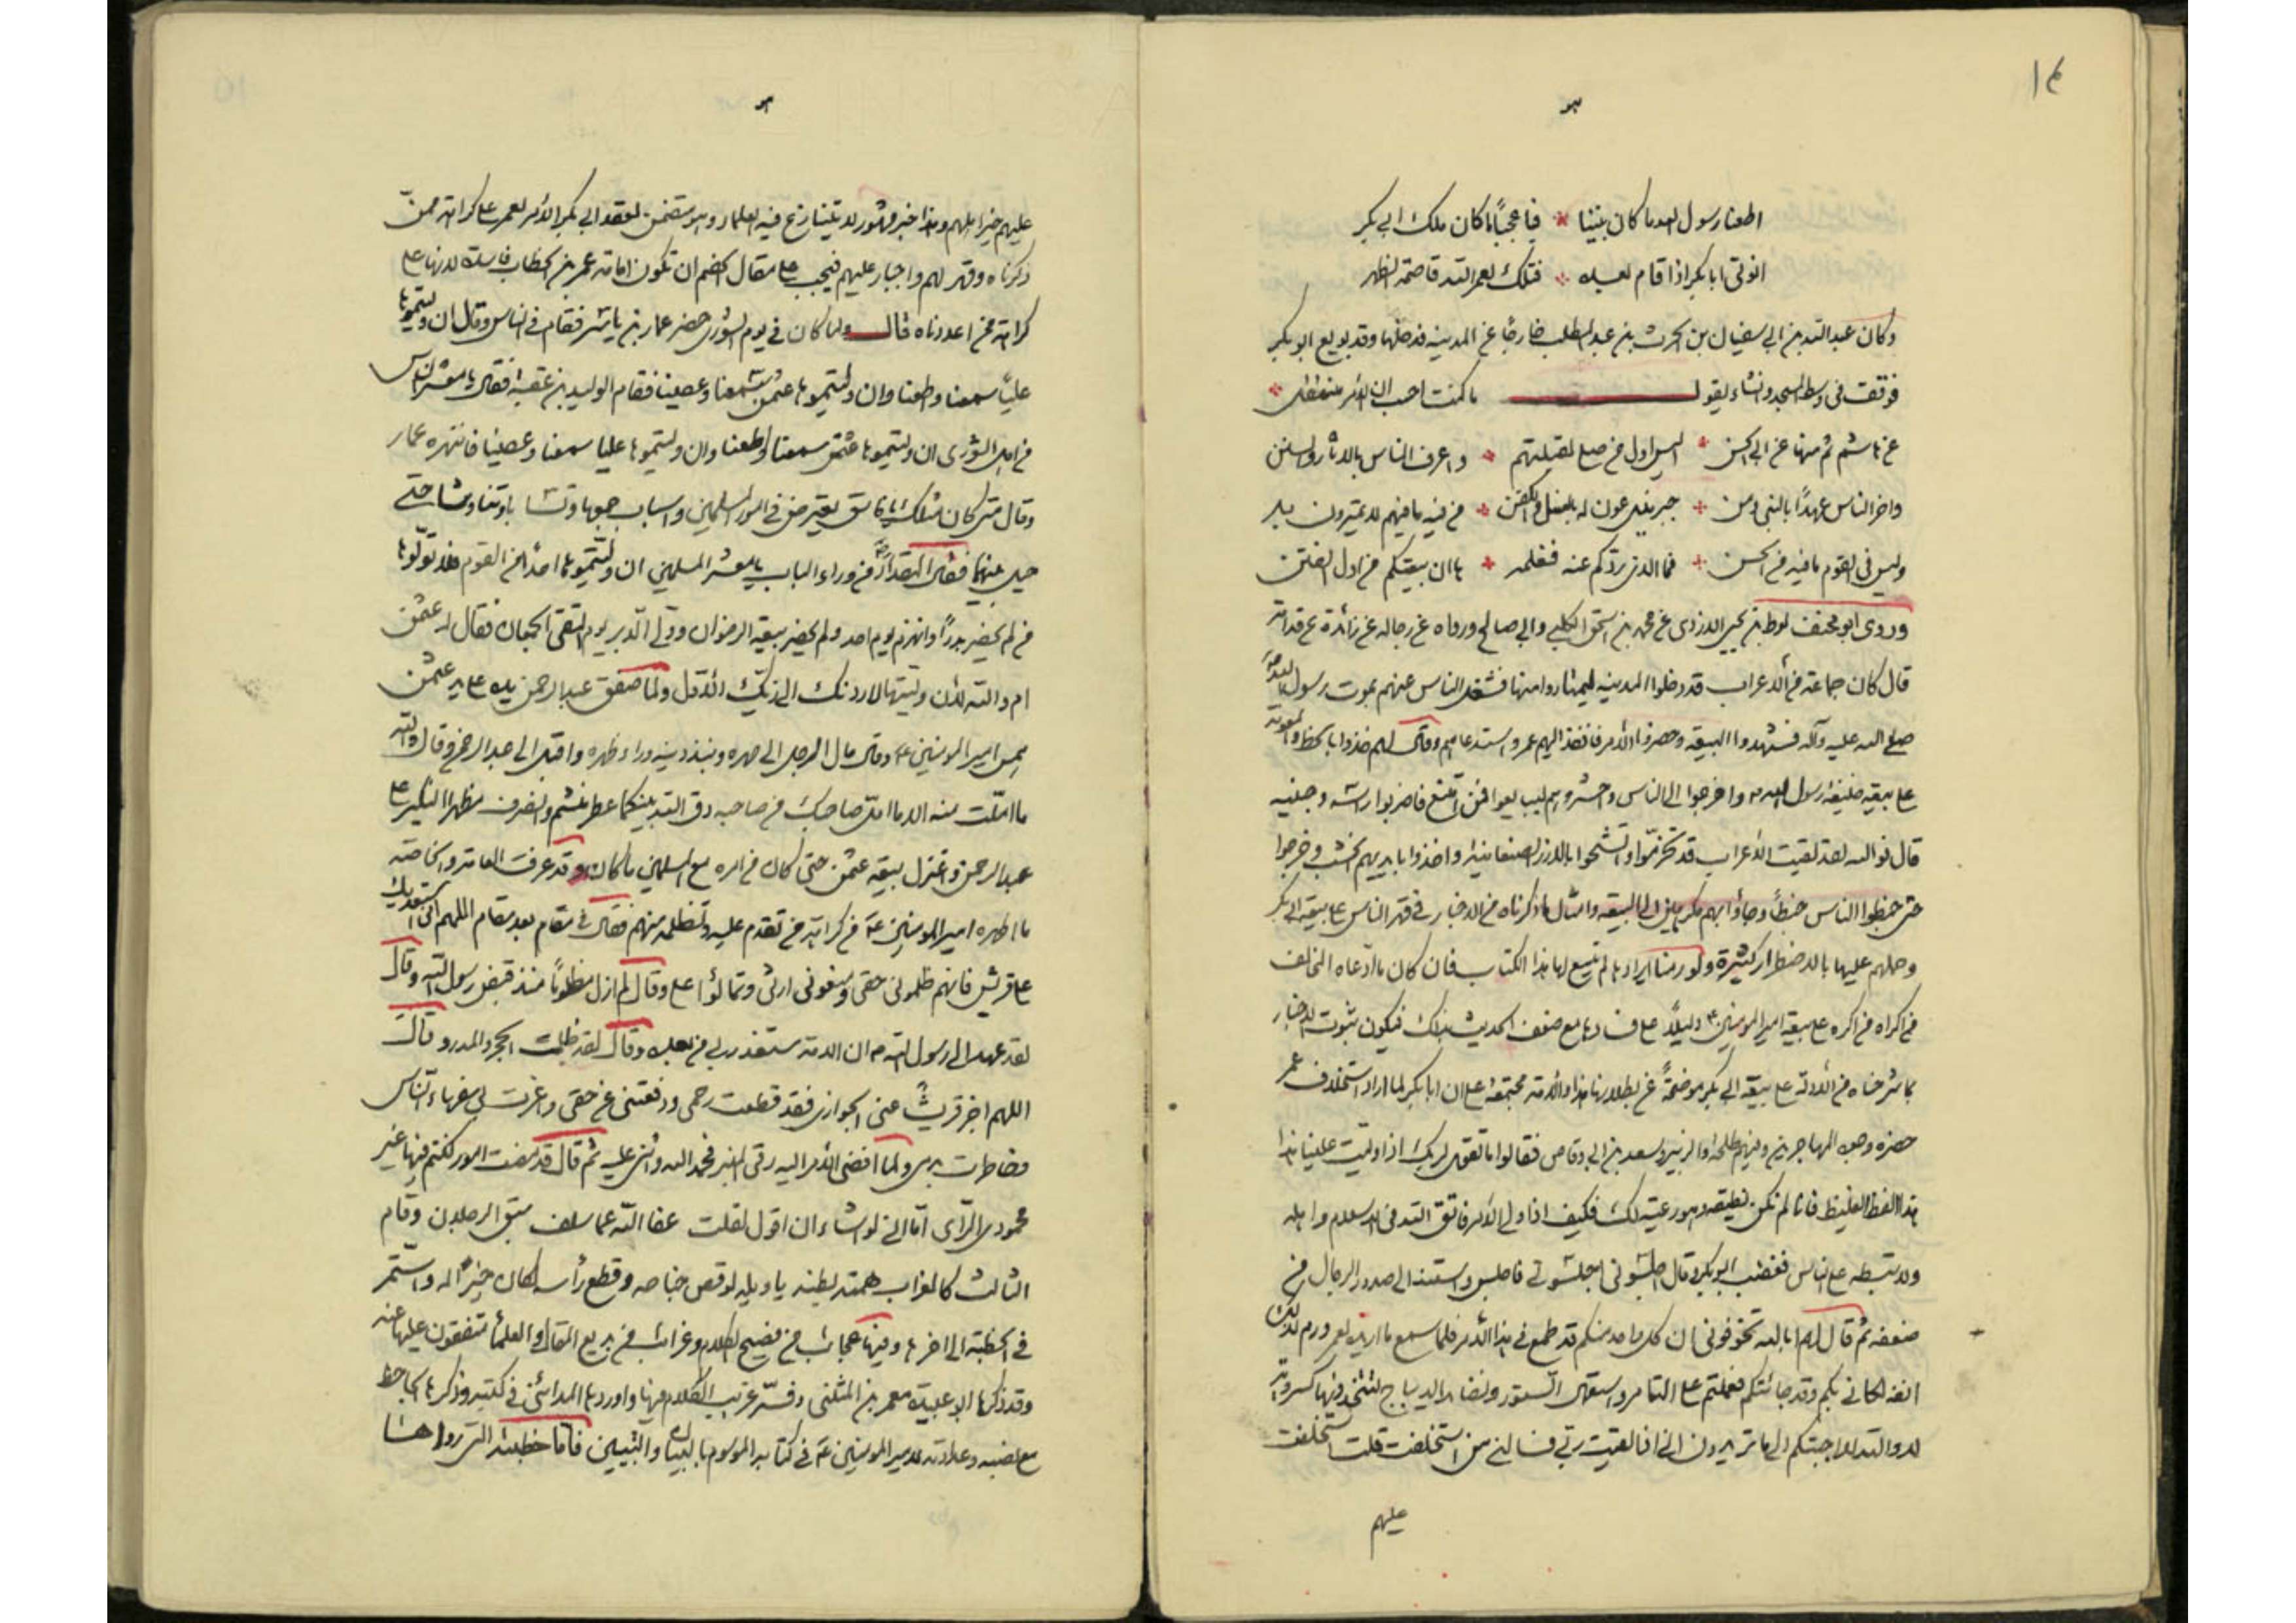 ١٤
اطعنا رسول الله ما كان بيننا * فيا عجبا ما كان ملك ابي بكر
ابا بكر اذا قام بعده * فتلك لعمر الله قاصمة الظهر
وكان عبد الله بن ابي سفيان بن الحرث بن عبد المطلب خارجا عن المدينة فدخلها وقد بويع ابو بكر
فوقف في وسط المسجد وانشاء يقول ما كنت احسب ان الامر منتقل *
عن هاشم ثم منها عن ابي الحسن * اليس اول من صلى لقبلتهم * واعرف الناس بالاثار والسنن
واخر الناس عهدا بالنبي ومن * جبريل عون له بالغسل والكفن * من فيه ما فيهم لا يمترون به
وليس في القوم ما فيه من الحسن * فما الذي ردكم عنه فنعلمه * ها ان بيعتكم من اول الفتن
وروى ابو مخنف لوط بن يحيى الازدي عن محمد بن السائب الكلبي وابي صالح ورواه عن رجاله عن زائدة بن قدامة
قال كان جماعة من الاعراب قد دخلوا المدينة ليمتاروا منها فشغل الناس عنهم بموت رسول الله
صلى الله عليه وآله فشهدوا البيعة وحضروا الامر فانفذ اليهم عمر واستدعاهم وقال لهم خذوا بالحظ والمعونة
على بيعة خليفة رسول الله واخرجوا الى الناس واحشروهم ليبايعوا فمن امتنع فاضربوا راسه وجبينه
قال فوالله لقد لقيت الاعراب قد تحزموا واتشحوا بالازر الصنعانية واخذوا بايديهم الخشب وخرجوا
حتى خبطوا الناس خبطا وجاؤا بهم مكرهين الى البيعة وامثال ما ذكرناه من الاخبار في قهر الناس على بيعة ابي بكر
وحملهم عليها بالاضطرار كثيرة ولو رمنا ايرادها لم يتسع لها هذا الكتاب فان كان ما ادعاه المخالف
من اكراه من اكره على بيعة امير المؤمنين دليلا على فسادها مع ضعف الحديث بذلك فيكون ثبوت الاخبار
بما شرحناه من الادلة على بيعة ابي بكر موضحة عن بطلانها هذا والامة مجتمعة على ان ابا بكر لما اراد استخلاف عمر
حضره وجوه المهاجرين وفيهم طلحة والزبير وسعد بن ابي وقاص فقالوا ما تقول لربك اذا وليت علينا هذا
هذا الفظ الغليظ فانا لم نكن نطيقه وهو رعية لك فكيف اذا ولي الامر فاتق الله في الاسلام واهله
ولا تسلطه على الناس فغضب ابو بكر وقال اجلسوني اجلسوني فاجلس واستند الى صدور الرجال من
ضعفه ثم قال لهم ابالله تخوفوني ان كل واحد منكم قد طمع في هذا الامر فلما سمع ما اريد لعمر ورم لذلك
انفه لكاني بكم وقد
لا والله لا اجبتكم الى ما تريدون اني اذا لقيت ربي فسالني من استخلفت قلت استخلفت
عليهم
عليهم خير اهلهم وهذا خبر مشهور لا يتنازع فيه العلماء وهو متضمن لعقد ابي بكر الامر لعمر على كراهة ممن
ذكرناه وقهر لهم واجبار عليهم فيجب على مقال الخصم ان تكون امامة عمر بن الخطاب فاسدة لانها على
كراهة من اعددناه قال ولما كان في يوم الشورى حضر عمار بن ياسر فقام في الناس وقال ان وليتموها
عليا سمعنا واطعنا وان وليتموها عثمن سمعنا وعصينا فقام الوليد بن عقبة فقال يا معشر الناس
من اهل الشورى ان وليتموها عثمن سمعنا واطعنا وان وليتموها عليا سمعنا وعصينا فانتهره عمار
وقال متى كان مثلك يا فاسق يعترض في امور المسلمين وتسابا جميعا وتناوشا حتى
حيل بينهما فقال المقداد من وراء الباب يا معشر المسلمين ان وليتموها احدا من القوم فلا تولوها
من لم يحضر بدرا وانهزم يوم احد ولم يحضر بيعة الرضوان وولى الدبر يوم التقى الجمعان فقال له عثمن
ام والله لئن وليتها لاردنك الى ربك الاول ولما صفق عبد الرحمن يده على يد عثمن
همس امير المؤمنين ع وقال مال الرجل الى صهره ونبذ دينه وراء ظهره واقبل الى عبد الرحمن وقال والله
ما املت منه الا ما امل صاحبك من صاحبه دق الله بينكما عطر منشم وانصرف مظهرا النكير على
عبد الرحمن واعتزل بيعة عثمن حتى كان من امره مع المسلمين ما كان وقد عرفت العامة والخاصة
ما اظهره امير المؤمنين ع من كراهة من تقدم عليه وتظلمه منهم فقال في مقام بعد مقام اللهم اني استعديك
على قريش فانهم ظلموني حقي ومنعوني ارثي وتمالؤا علي وقال لم ازل مظلوما منذ قبض رسول الله وقال
لقد عهد الي رسول الله ان الامة ستغدر بي من بعده وقال لقد ظلمت الحجر والمدر وقال
اللهم اجز قريشا عني الجوازي فقد قطعت رحمي ودفعتني عن حقي واغرت بي سفهاء الناس
وخاطرت بدمي ولما افضى الامر اليه رقى المنبر فحمد الله واثنى عليه ثم قال قد مضت امور كنتم فيها غير
محمودي الراي اما اني لو اشاء ان اقول لقلت عفا الله عما سلف سبق الرجلان وقام
الثالث كالغراب همته بطنه يا ويله لو قص جناحه وقطع رأسه لكان خيرا له واستمر
في الخطبة الى اخرها وفيها عجائب من فصيح الكلام وغرائب من بديع المقال والعلماء متفقون عليها عنه
وقد ذكرها ابو عبيدة معمر بن المثنى وفسر غريب الكلام فيها واوردها المدائني في كتبه وذكرها الجاحظ
مع نصبه وعداوته لامير المؤمنين ع في كتابه الموسوم بالبيان والتبيين فاما خطبته التي رواها